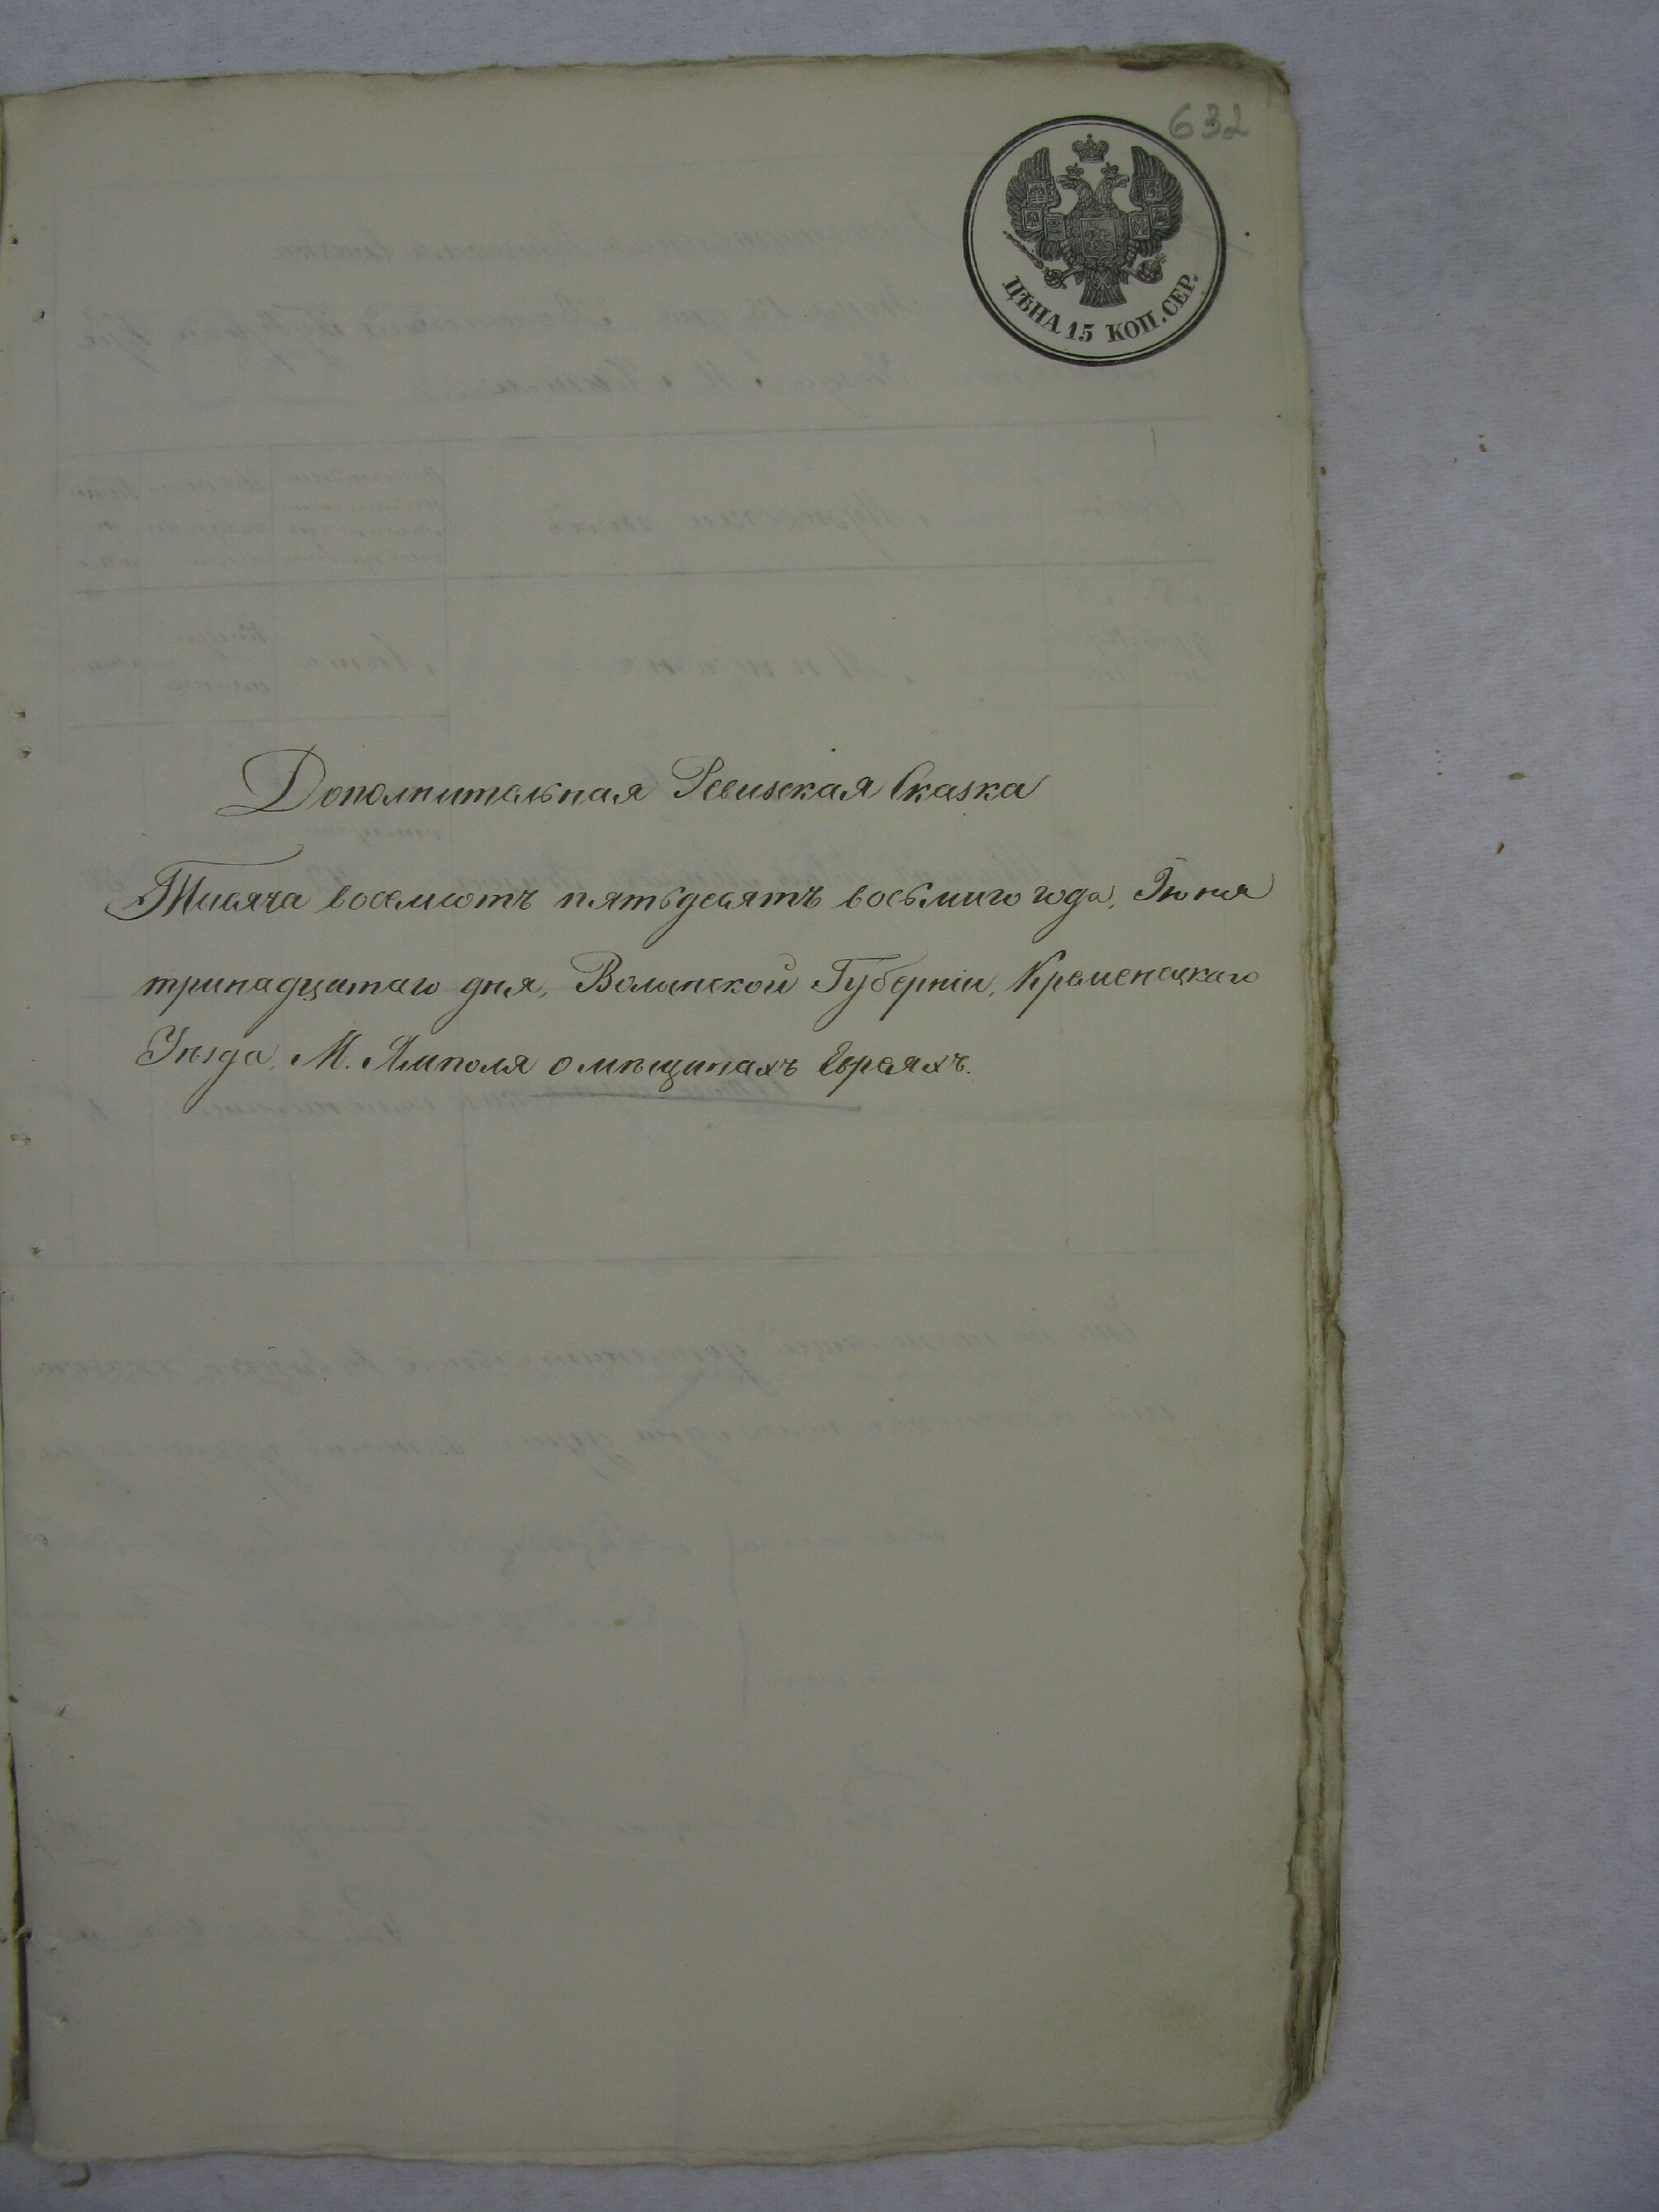 632
ЦѢНА 15 КОП. СЕР.
Дополнительная Ревизская Сказка
Тысяча восемьсотъ пятьдесятъ восьмаго года, Іюня
тринадцатаго дня, Волынской Губерніи, Кременецкаго
Уѣзда, М. Ямполя о мѣщанахъ Евреяхъ.